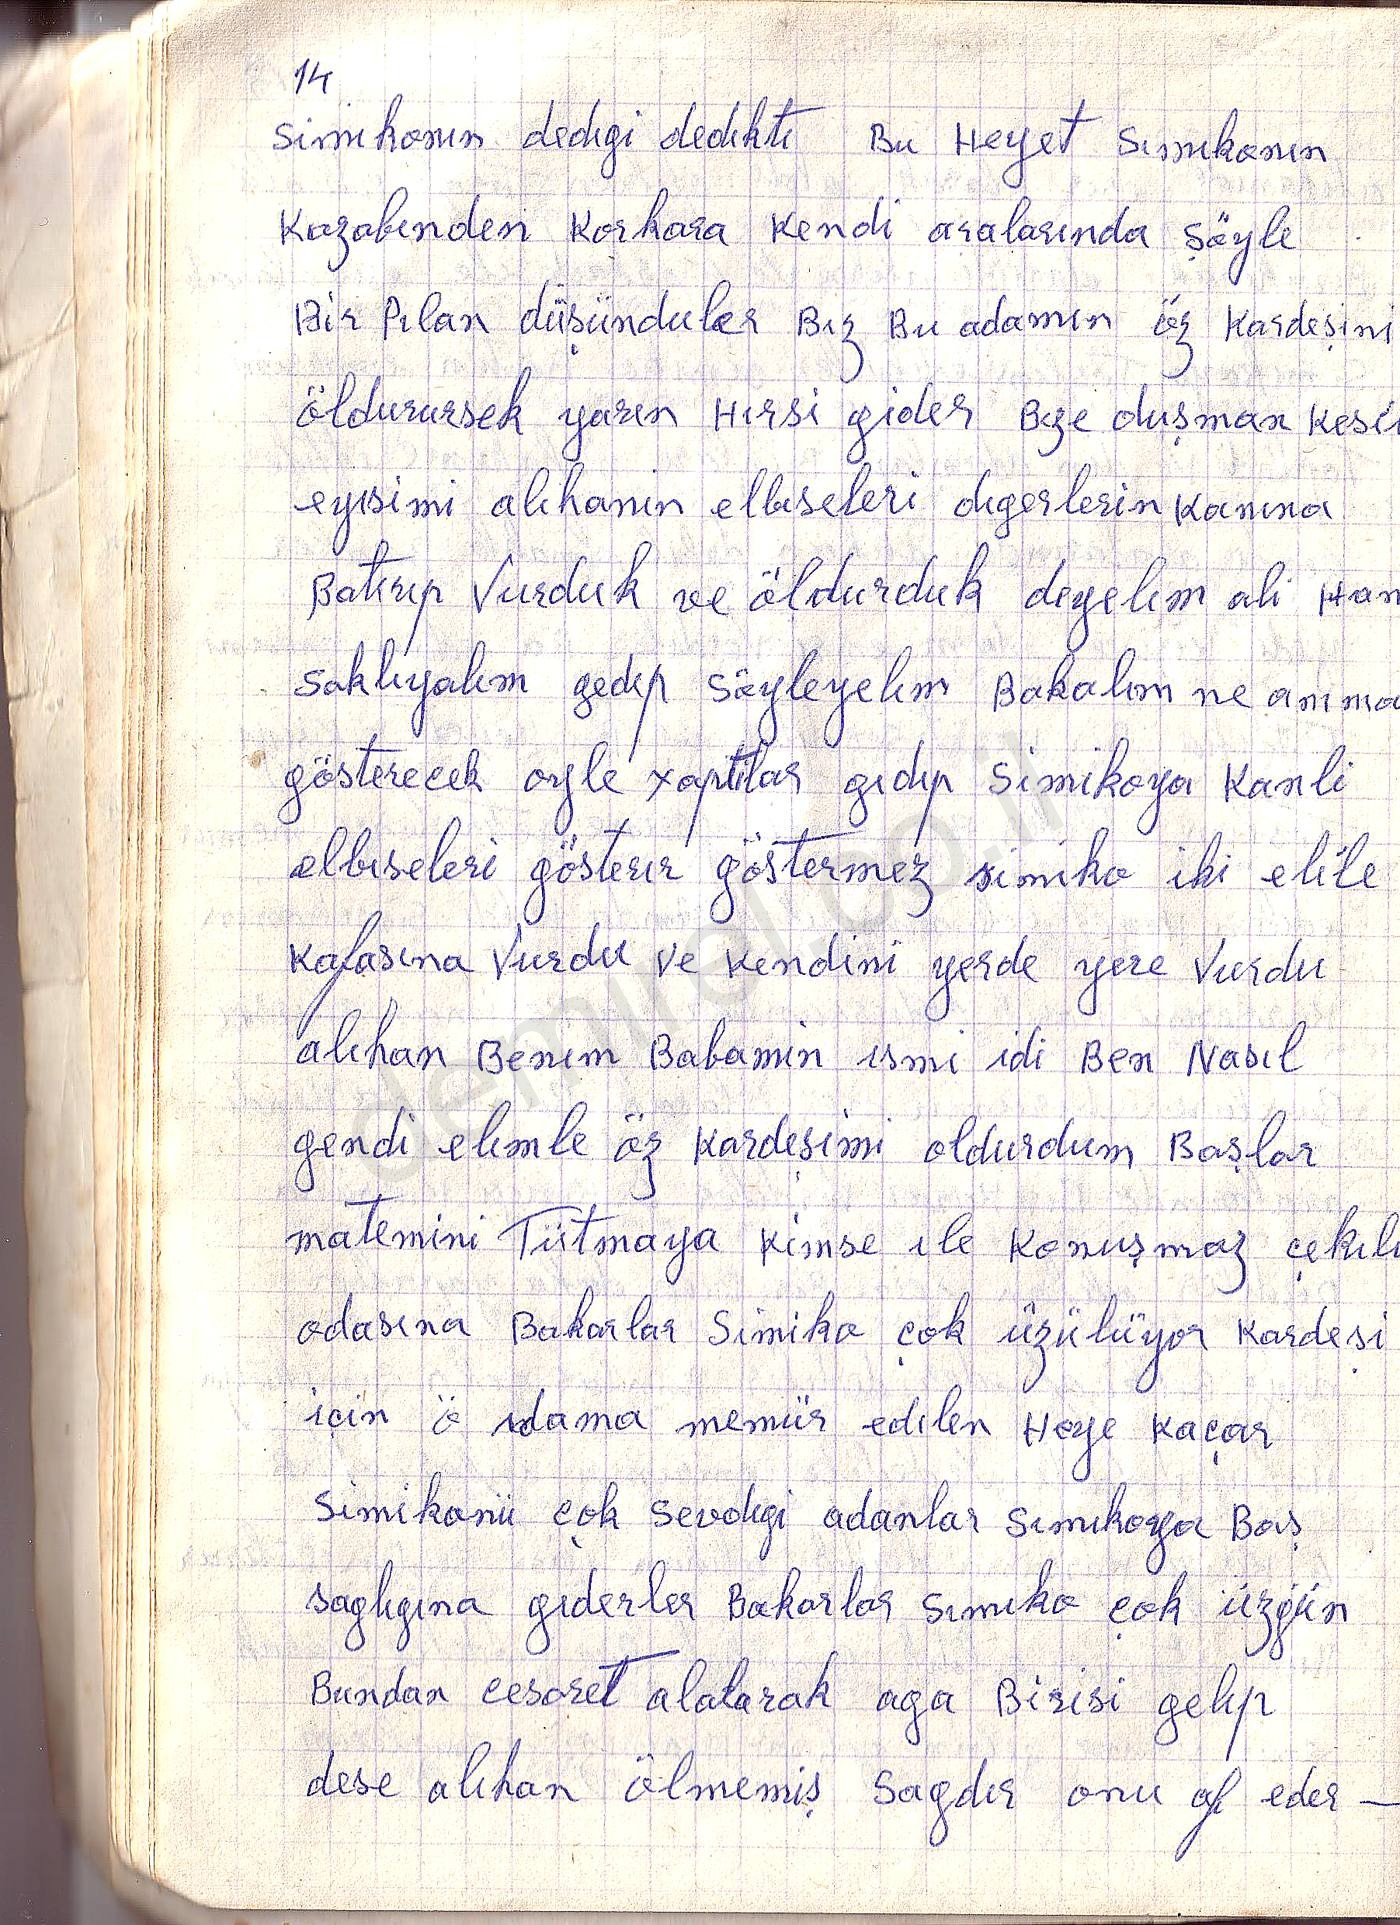 14
Simikonın dedıgi dedıktı Bu Heyet Sımıkonın
Kazabından Korkara Kendi aralarında şöyle
Bir Pılan düşünduler Bız Bu adamın öz Kardeşini
öldurursek yarın Hırsi gider Bıze duşman Kesi
eyısimi alıhanin elbıseleri dıgerlerin Kanına
Batırıp Vurduk ve öldurduk dıyelım ali Han
Saklıyalım gedıp söyleyelım Bakalım ne amma
gösterecek oyle yaptılar gıdıp Simikoya Kanli
elbıseleri gösterır göstermez simiko iki elile
Kafasına Vurdu ve Kendini yerde yere Vurdu
alıhan Benım Babamin ısmı idi Ben Nasıl
gendi elımle öz Kardeşimi oldurdum Başlar
matemini Tütmaya Kimse ıle Konuşmaz çekılı
odasına Bakarlar Simiko çok üzülüyor Kardeşi
için ö ıdama memür edılen Heye Kaçar
Simikonü çok Sevdıgi adanlar Sımıkoya Baş
saglıgına gıderler Bakarlar Sımıko çok üzgün
Bundan cesaret alalarak aga Birisi gelıp
dese alıhan ölmemiş Sagdır onu af eder —
demiral.co.il